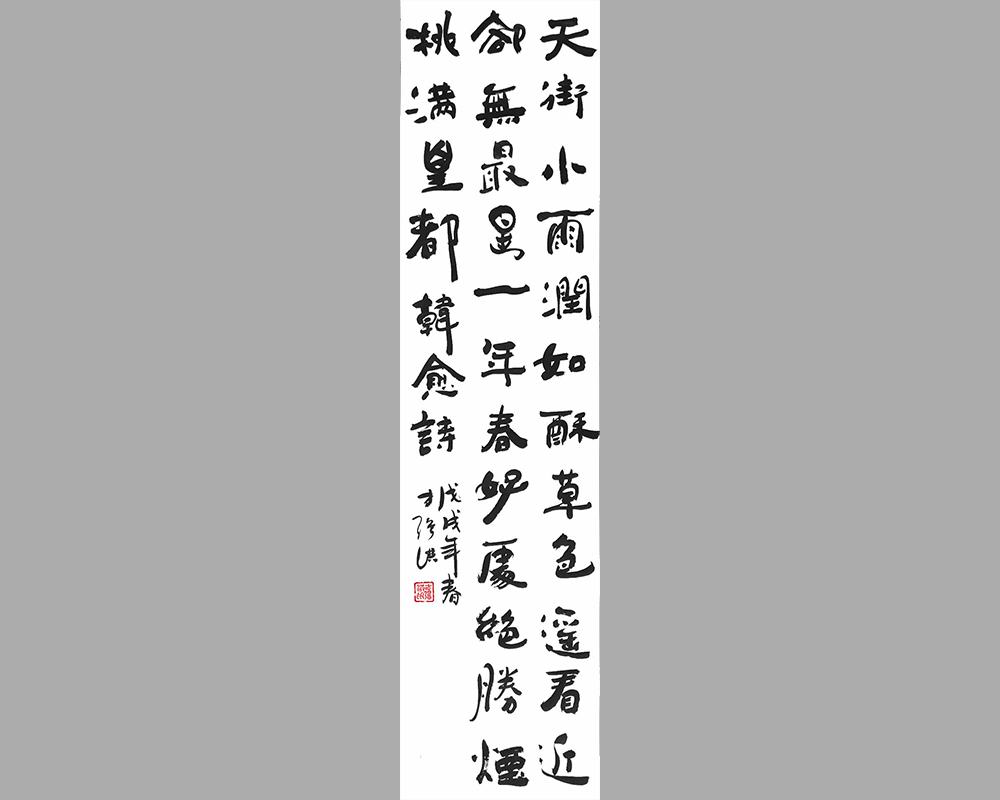 天街小雨潤如酥草色遥看近
卻無最是一年春好處絶勝煙
柳满皇都韓愈詩
戊戌年春